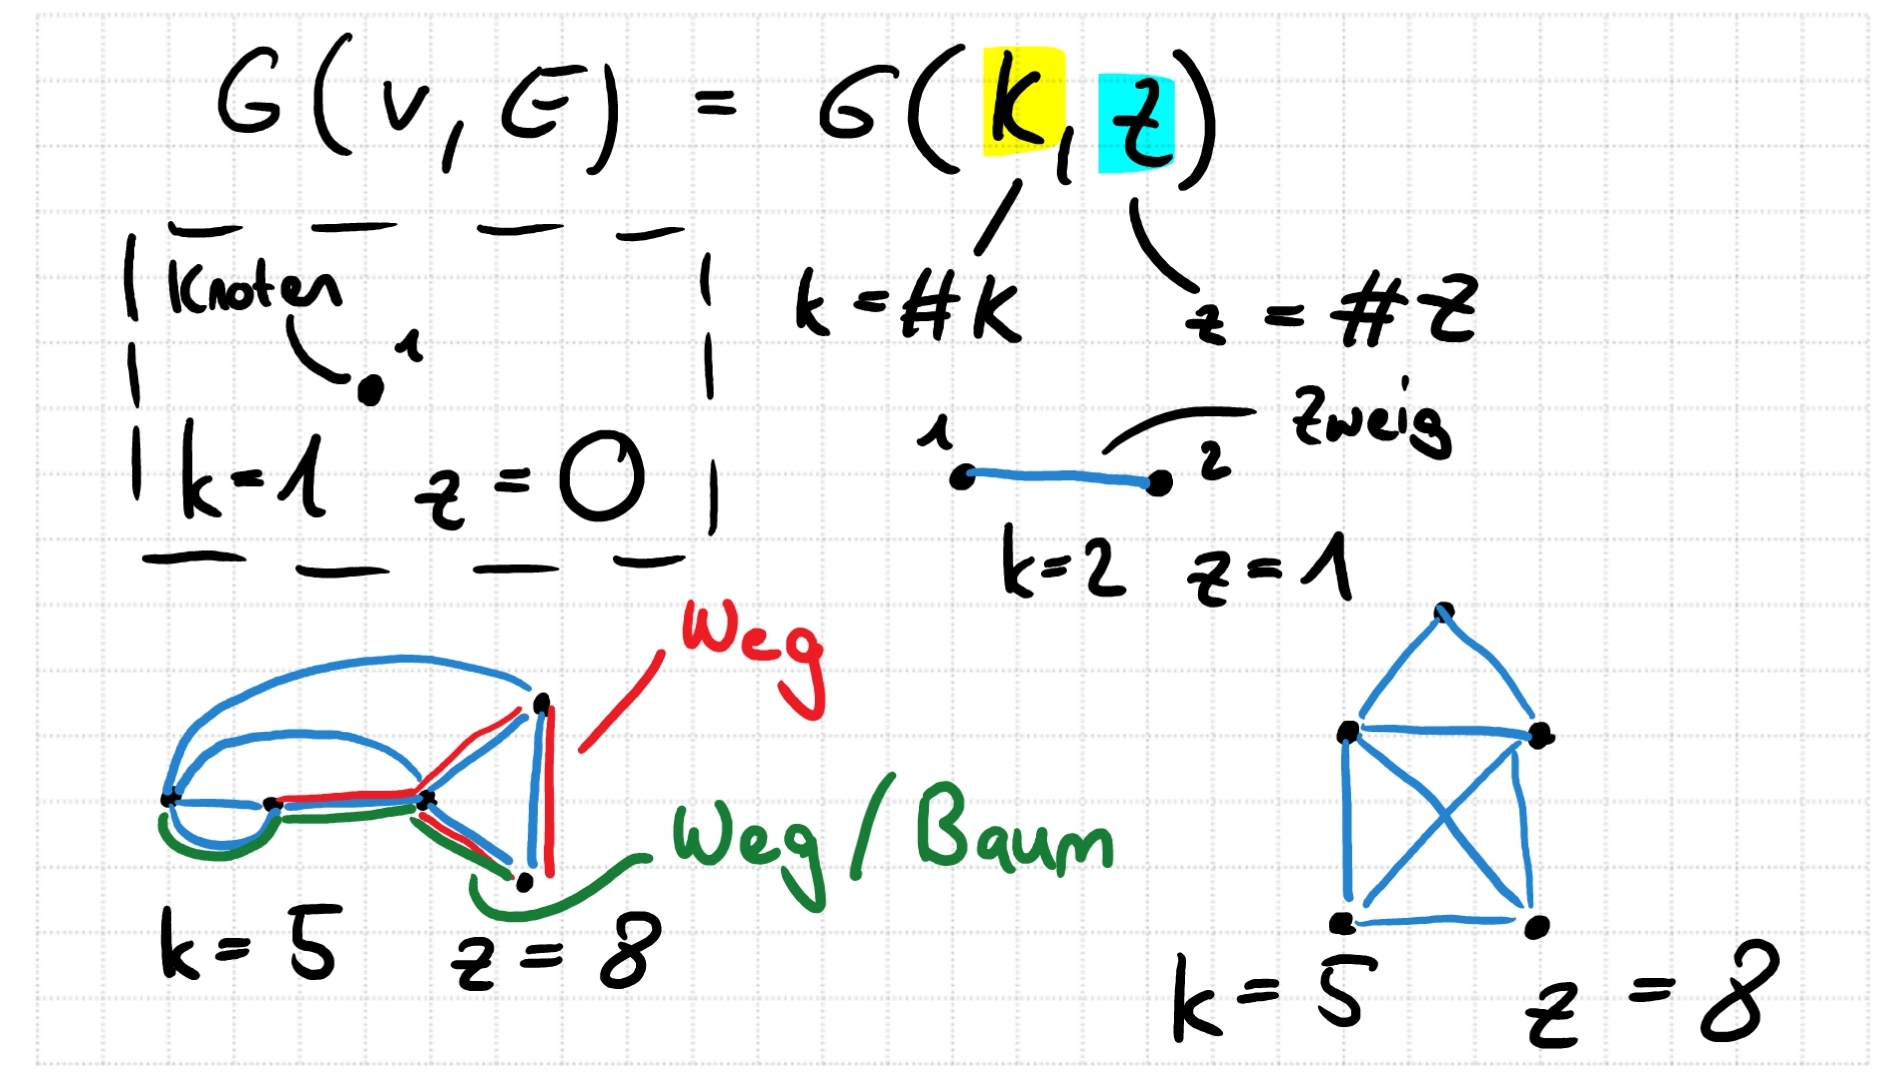 G(V, E) = G(K, Z)
Knoten
1
k=1 z=0
k=#K z=#Z
1 2 Zweig
k=2 z=1
Weg
Weg/Baum
k=5 z=8
k=5 z=8